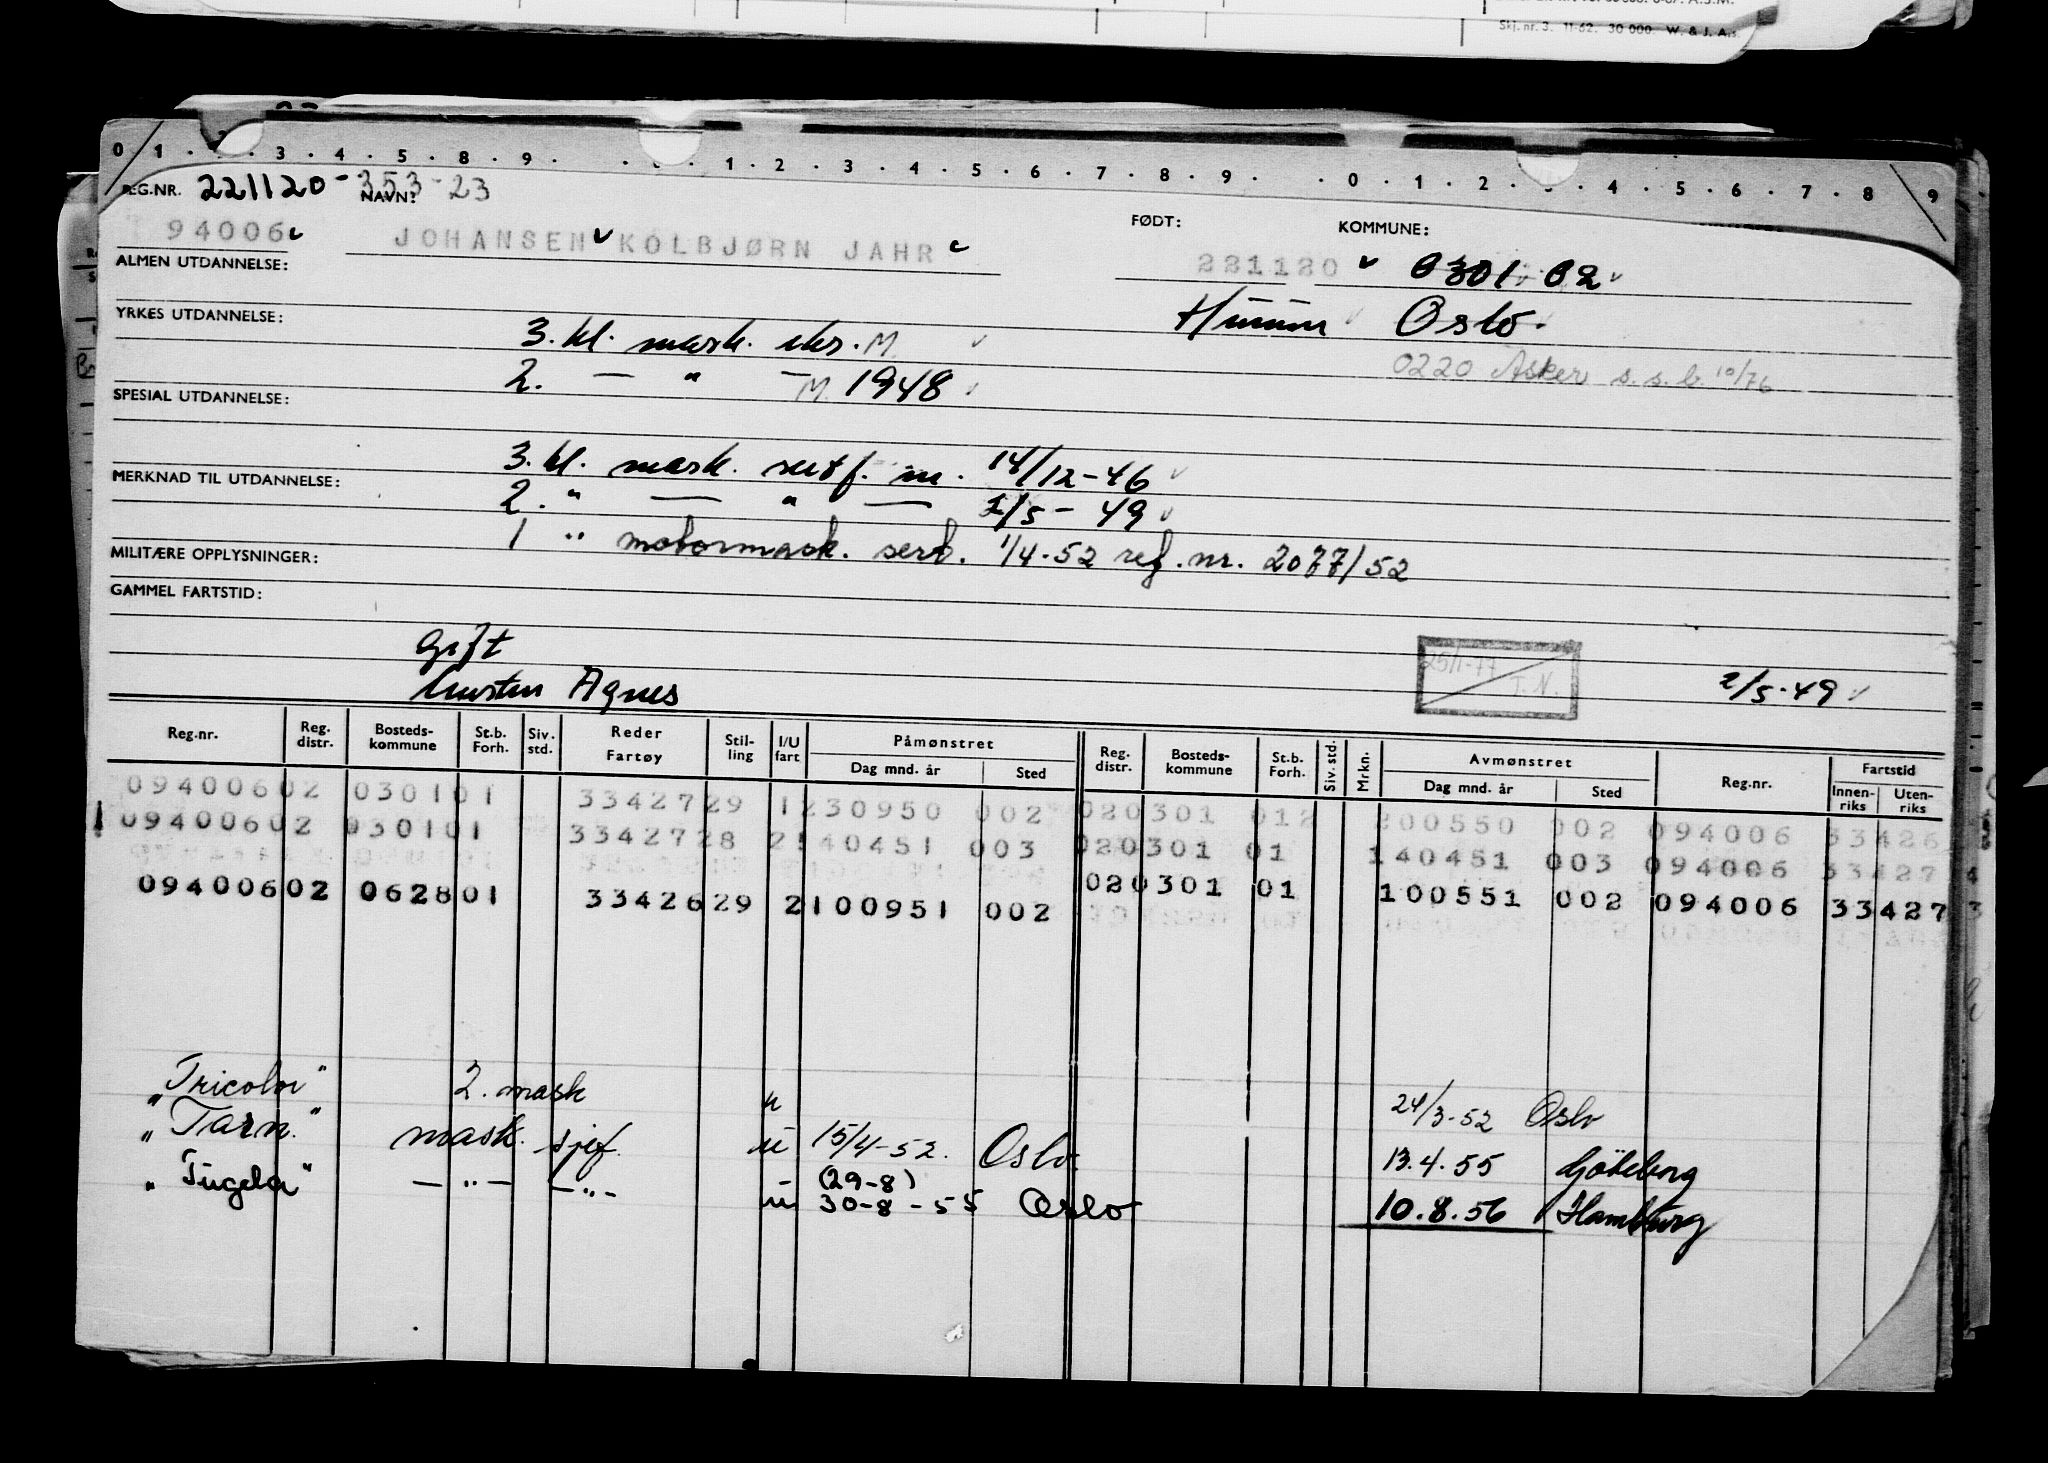 Skj. nr. 3. 11-62. 30 000. W. & J. A.s.
0 1 . . 3 . 4 . 5 . 8 . 9 . . . 1 . 2 . 3 . 4 . 5 . 6 . 7 . 8 . 9 . . 0 . 1 . 2 . 3 . 4 . 5 . 6 . 7 . 8 . 9
REG.NR. 221120-353-23 NAVN:
94006 JOHANSEN KOLBJØRN JAHR FØDT: 221120 KOMMUNE: 0301 02
ALMEN UTDANNELSE:
Hurum Oslo.
YRKES UTDANNELSE: 3. kl. mask. eks. M.
0220 Asker s.s.b. 10/76
2. — " — M. 1948
SPESIAL UTDANNELSE:
3. kl. mask. sertf. m. 14/12-46
MERKNAD TIL UTDANNELSE:
2. " — " — 2/5-49
1 " motormask. sert. 1/4-52 ref. nr. 2077/52
MILITÆRE OPPLYSNINGER:
GAMMEL FARTSTID:
Gift
Agnes
25/1-77 T.N.
2/5-49
Reg.nr. Reg. distr. Bosteds-kommune St.b. Forh. Siv. std. Reder Fartøy Stil-ling I/U fart Påmønstret Dag mnd. år Sted Reg. distr. Bosteds-kommune St.b. Forh. Siv. std. Mrkn. Avmønstret Dag mnd. år Sted Reg.nr. Fartstid Innen-riks Uten-riks
094006 02 0301 01 33427 29 1 230950 002 02 0301 01 2 200550 002 094006 33426
094006 02 0301 01 33427 28 2 140451 003 02 0301 01 140451 003 094006 33427
094006 02 0628 01 33426 29 2 100951 002 02 0301 01 100551 002 094006 33427
"Tricolor" 2. mask u 24/3-52 Oslo
"Tarn." mask. sjef. u 15/4-52. Oslo. 13.4.55 Göteborg
"Tugela" — " — — " — u (29-8) 30-8-55 Oslo 10.8.56 Hamburg